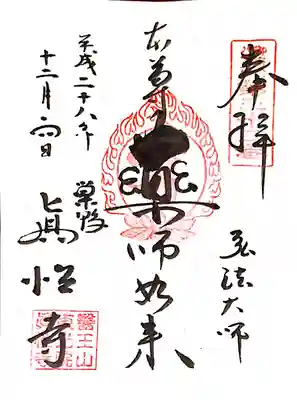 奉拝
弘法大師
本尊
藥師如来
平成二十八年
十二月 日
巣鴨
眞性寺
醫王山